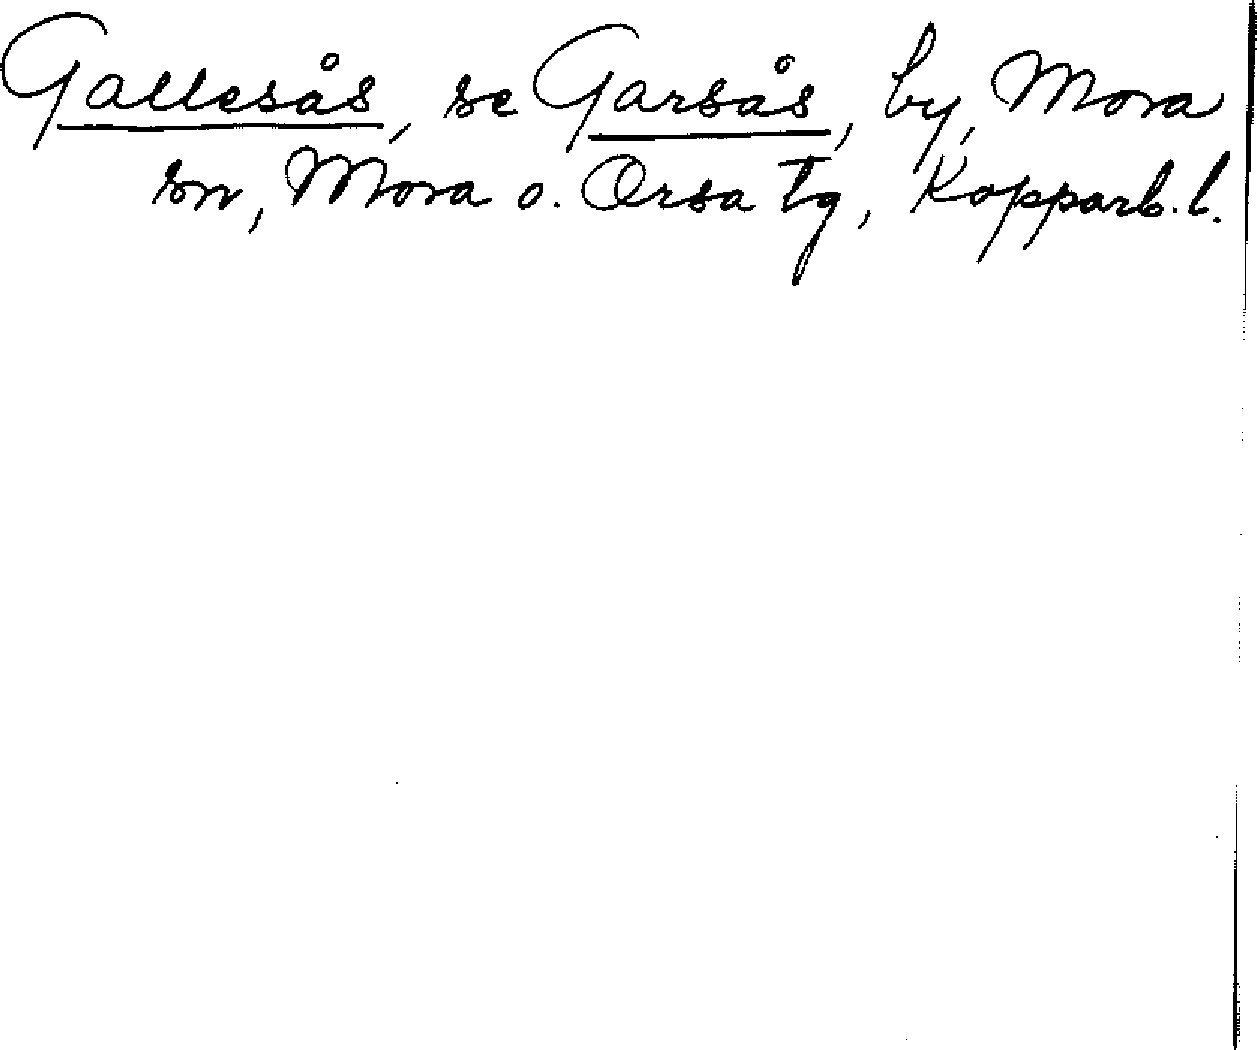 Gallesås, se Garsås, by, Mora
sn, Mora o. Orsa tg, Kopparb. l.